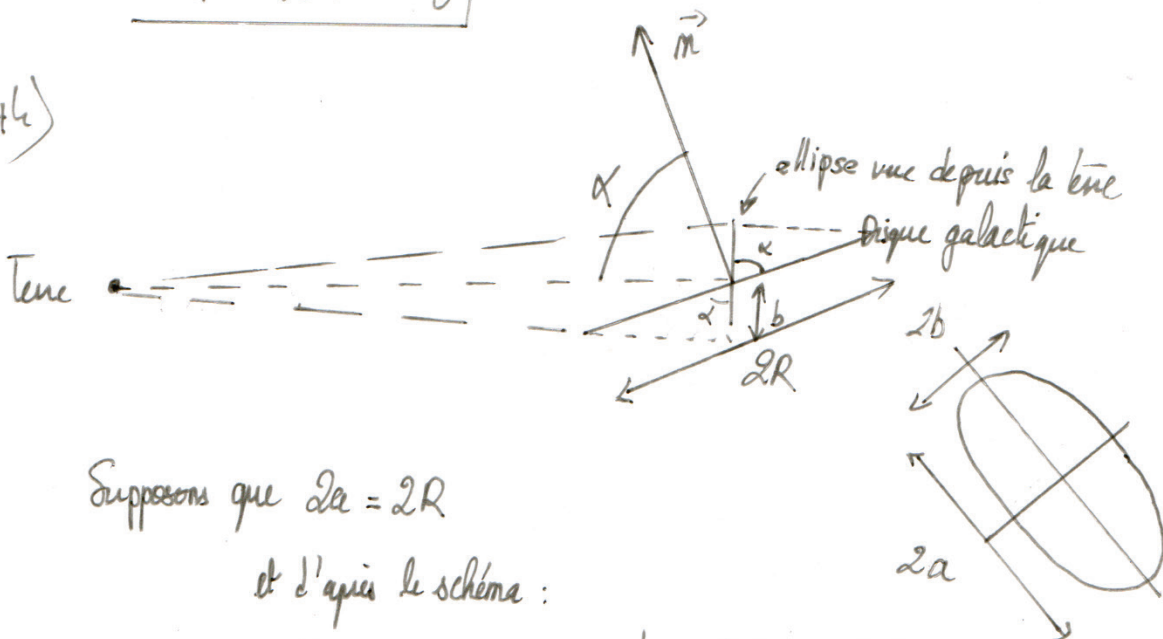 n⃗
α
ellipse vue depuis la terre
Disque galactique
Terre
α
α
b
2R
2b
2a
Supposons que 2a = 2R
et d'après le schéma :